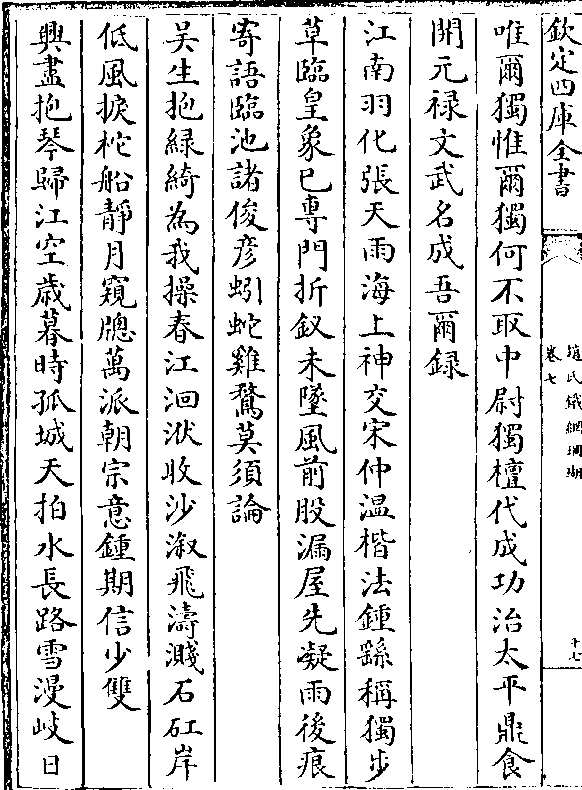 欽定四庫全書
趙氏鐵網珊瑚
卷七
十七
唯爾獨惟爾獨何不取中尉獨檀代成功治太平鼎食
開元禄文武名成吾爾録
江南羽化張天雨海上神交宋仲温楷法鍾繇稱獨步
草臨皇象已專門折釵未墜風前股漏屋先凝雨後痕
寄語臨池諸俊彦蚓蛇雞鶩莫須論
吴生抱緑綺為我操春江洄洑收沙溆飛濤濺石矼岸
低風捩柁船靜月窺牕萬派朝宗意鍾期信少雙
興盡抱琴歸江空歳暮時孤城天拍水長路雪漫岐日